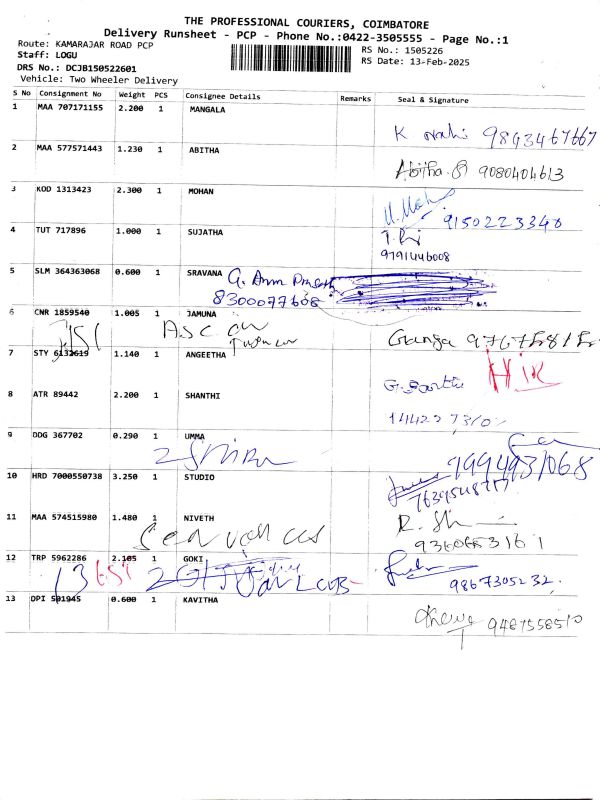 THE PROFESSIONAL COURIERS, COIMBATORE
Delivery Runsheet - PCP - Phone No.:0422-3505555 - Page No.:1
Route: KAMARAJAR ROAD PCP
RS No.: 1505226
Staff: LOGU
RS Date: 13-Feb-2025
DRS No.: DCJB150522601
Vehicle: Two Wheeler Delivery
S No Consignment No Weight PCS Consignee Details Remarks Seal & Signature
1 MAA 707171155 2.200 1 MANGALA
K 9843467667
2 MAA 577571443 1.230 1 ABITHA
Abitha 9080404613
3 KOD 1313423 2.300 1 MOHAN
9150223340
4 TUT 717896 1.000 1 SUJATHA
9791446008
5 SLM 364363068 0.600 1 SRAVANA
8300077608
6 CNR 1859540 1.005 1 JAMUNA
Ganga
7 STY 6132619 1.140 1 ANGEETHA
8 ATR 89442 2.200 1 SHANTHI
9 DDG 367702 0.290 1 UMMA
9994931068
10 HRD 7000550738 3.250 1 STUDIO
11 MAA 574515980 1.480 1 NIVETH
12 TRP 5962286 2.105 1 GOKI
9867305232
13 DPI 501945 0.600 1 KAVITHA
9487558510